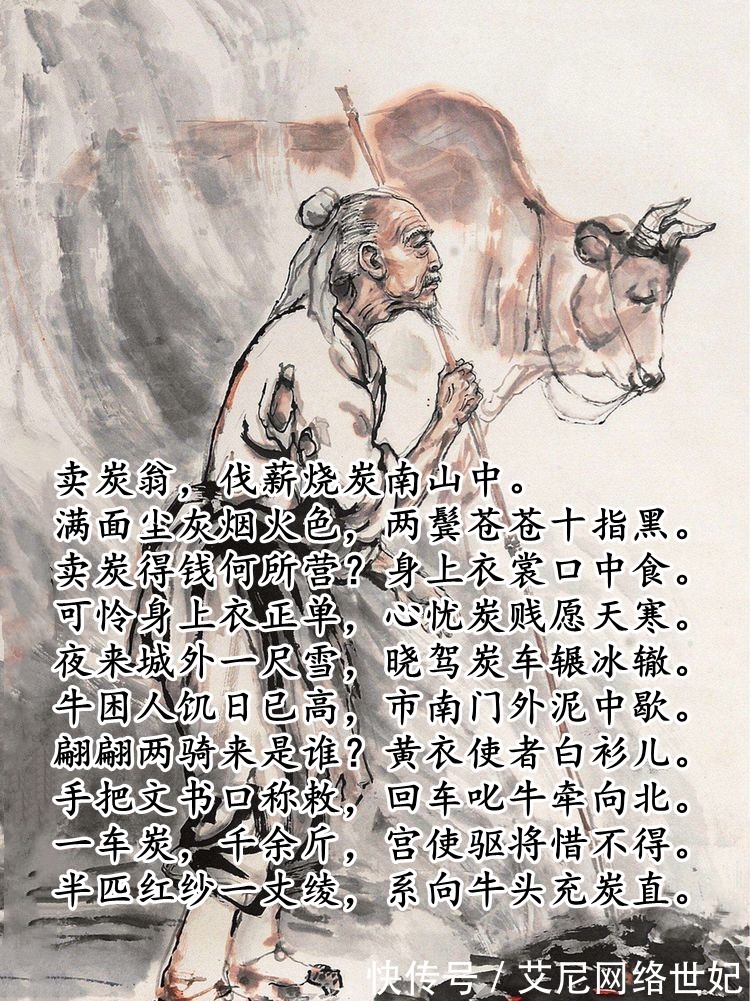 卖炭翁，伐薪烧炭南山中。
满面尘灰烟火色，两鬓苍苍十指黑。
卖炭得钱何所营？身上衣裳口中食。
可怜身上衣正单，心忧炭贱愿天寒。
夜来城外一尺雪，晓驾炭车辗冰辙。
牛困人饥日已高，市南门外泥中歇。
翩翩两骑来是谁？黄衣使者白衫儿。
手把文书口称敕，回车叱牛牵向北。
一车炭，千余斤，宫使驱将惜不得。
半匹红纱一丈绫，系向牛头充炭直。
快传号 / 艾尼网络世妃